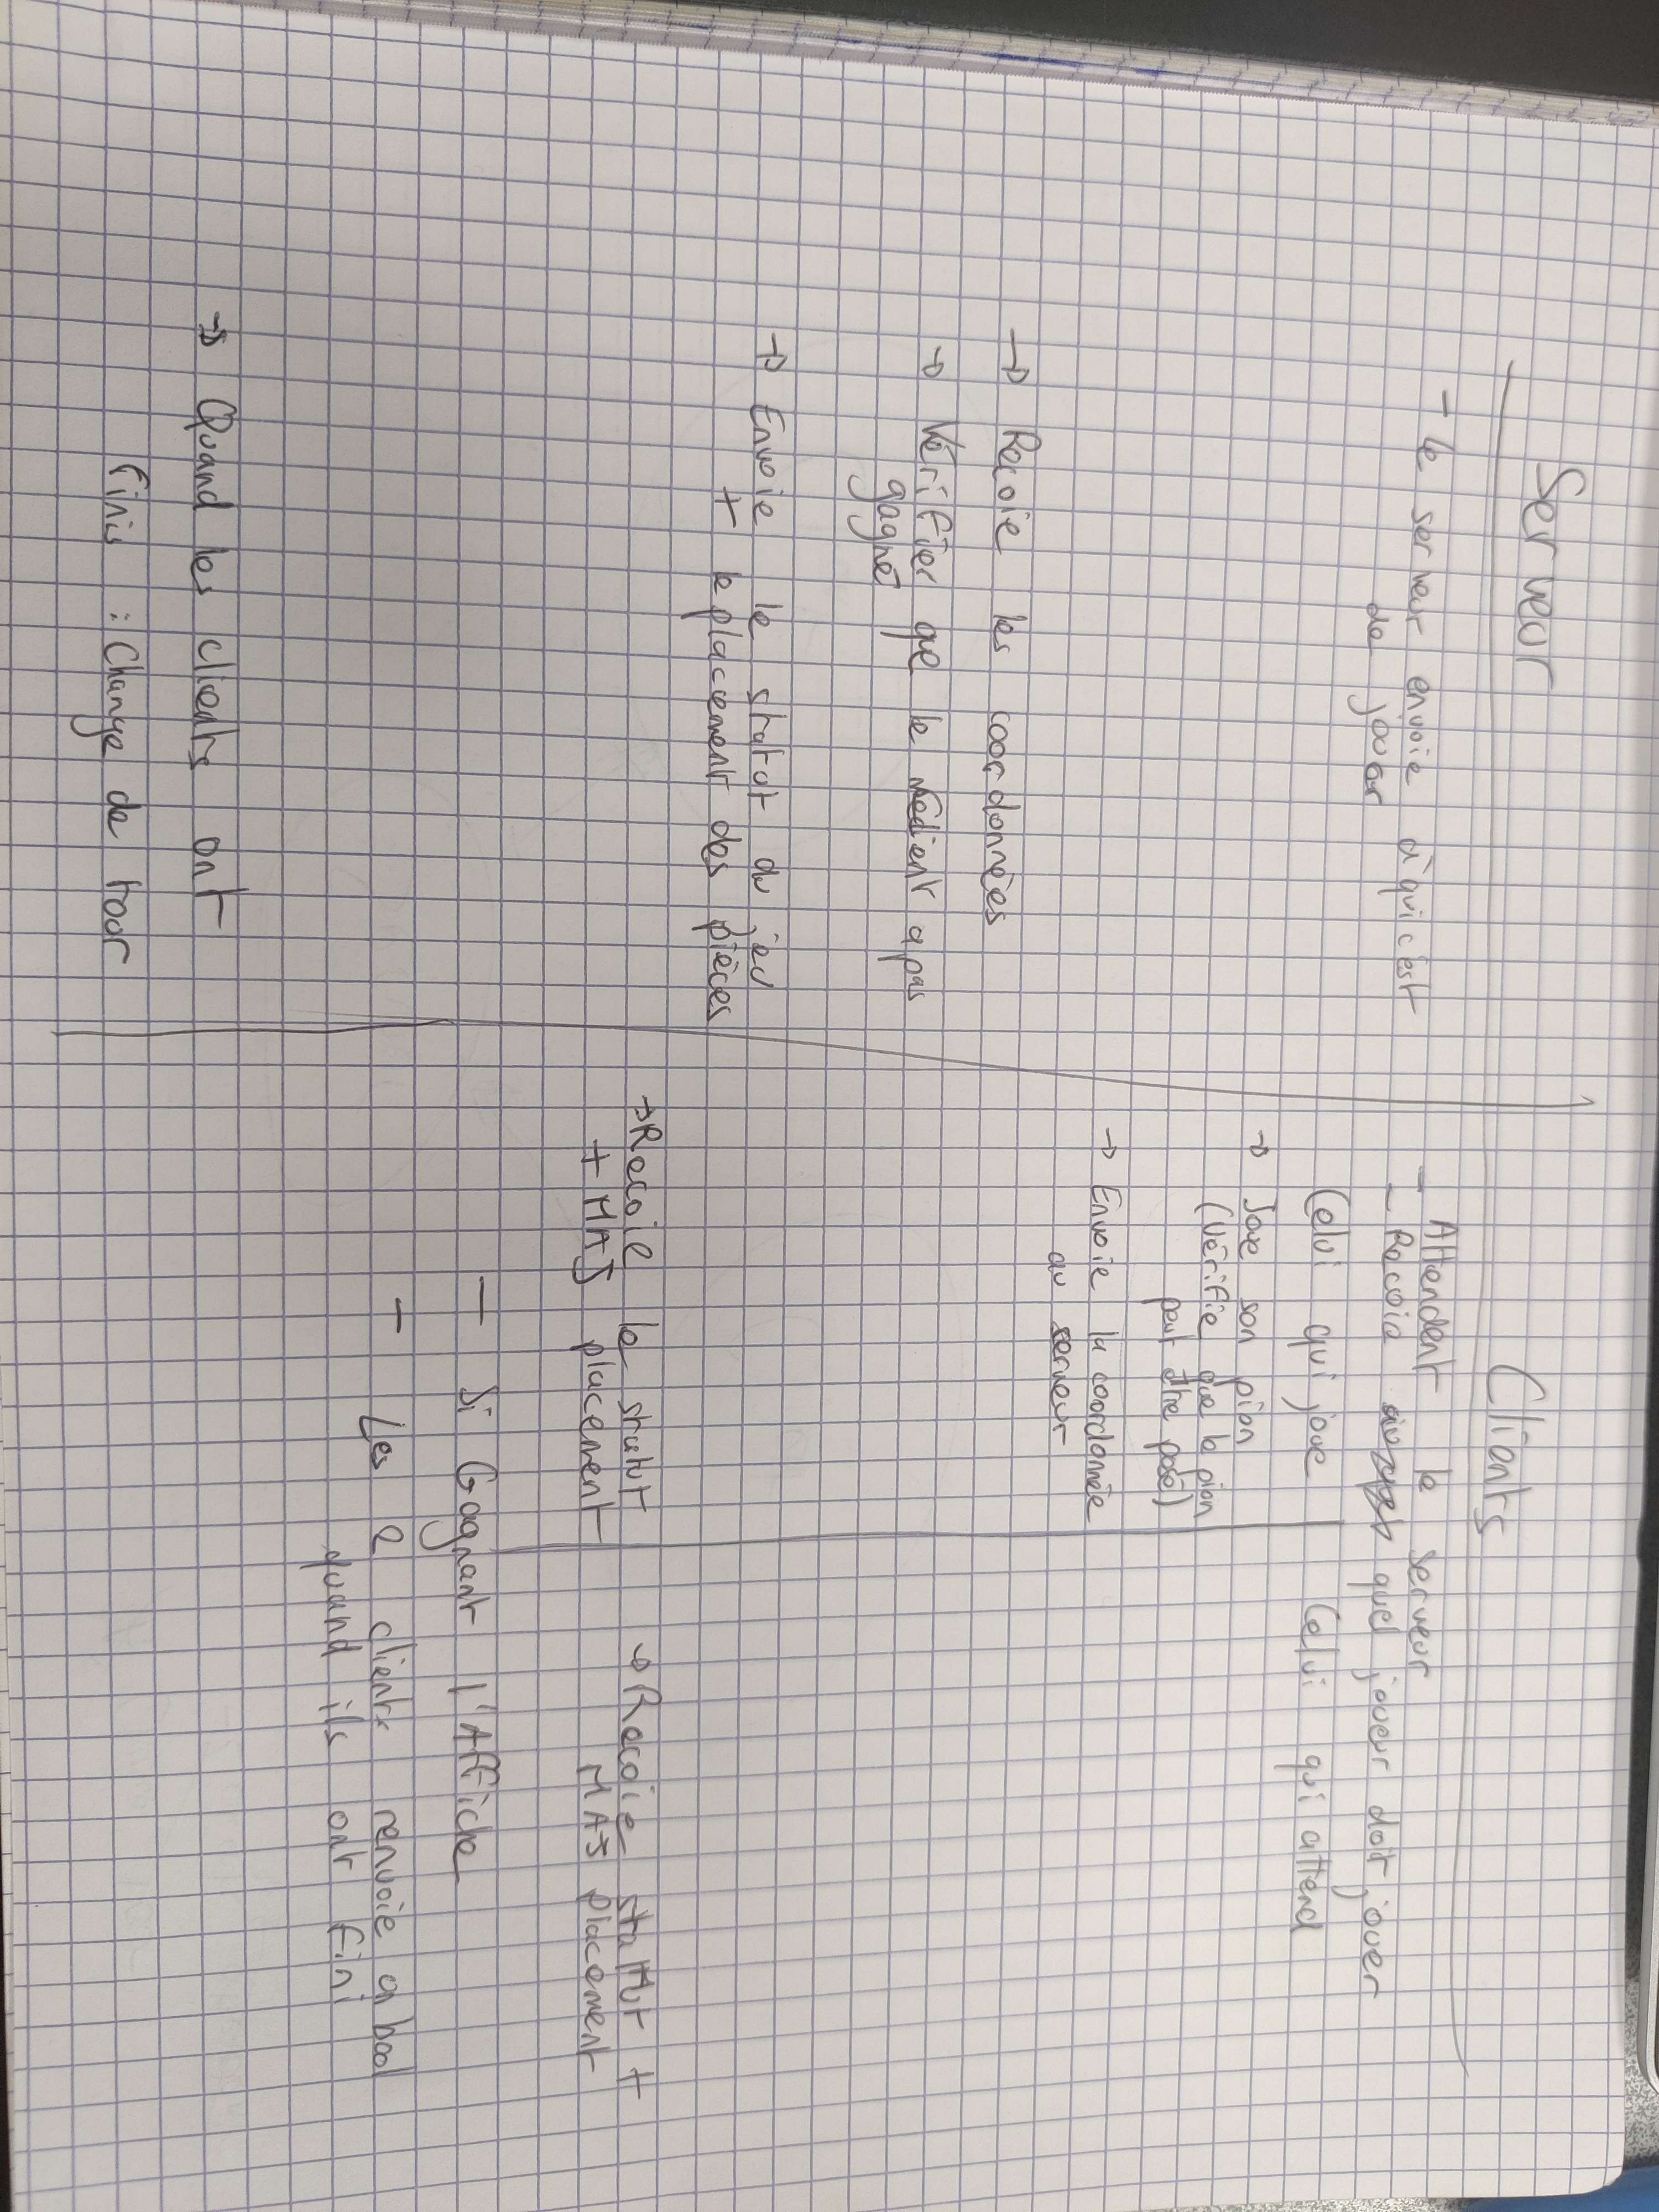 Serveur
- le serveur envoie à qui c'est
de jouer
→ Recoie les coordonnées
→ Vérifier que le client a pas
gagné
→ Envoie le statut du jeu
+ le placement des pièces
→ Quand les clients ont
finis : Change de tour
Clients
- Attendent le serveur
- Recoie quel joueur doit jouer
Celui qui joue
→ Joue son pion
(Vérifie que le pion
peut être posé)
→ Envoie la coordonnée
au serveur
→ Recoie le statut
+ MAJ placement
Celui qui attend
→ Recoie statut +
MAJ placement
- Si Gagnant l'Affiche
- Les 2 clients renvoie un bool
quand ils ont fini